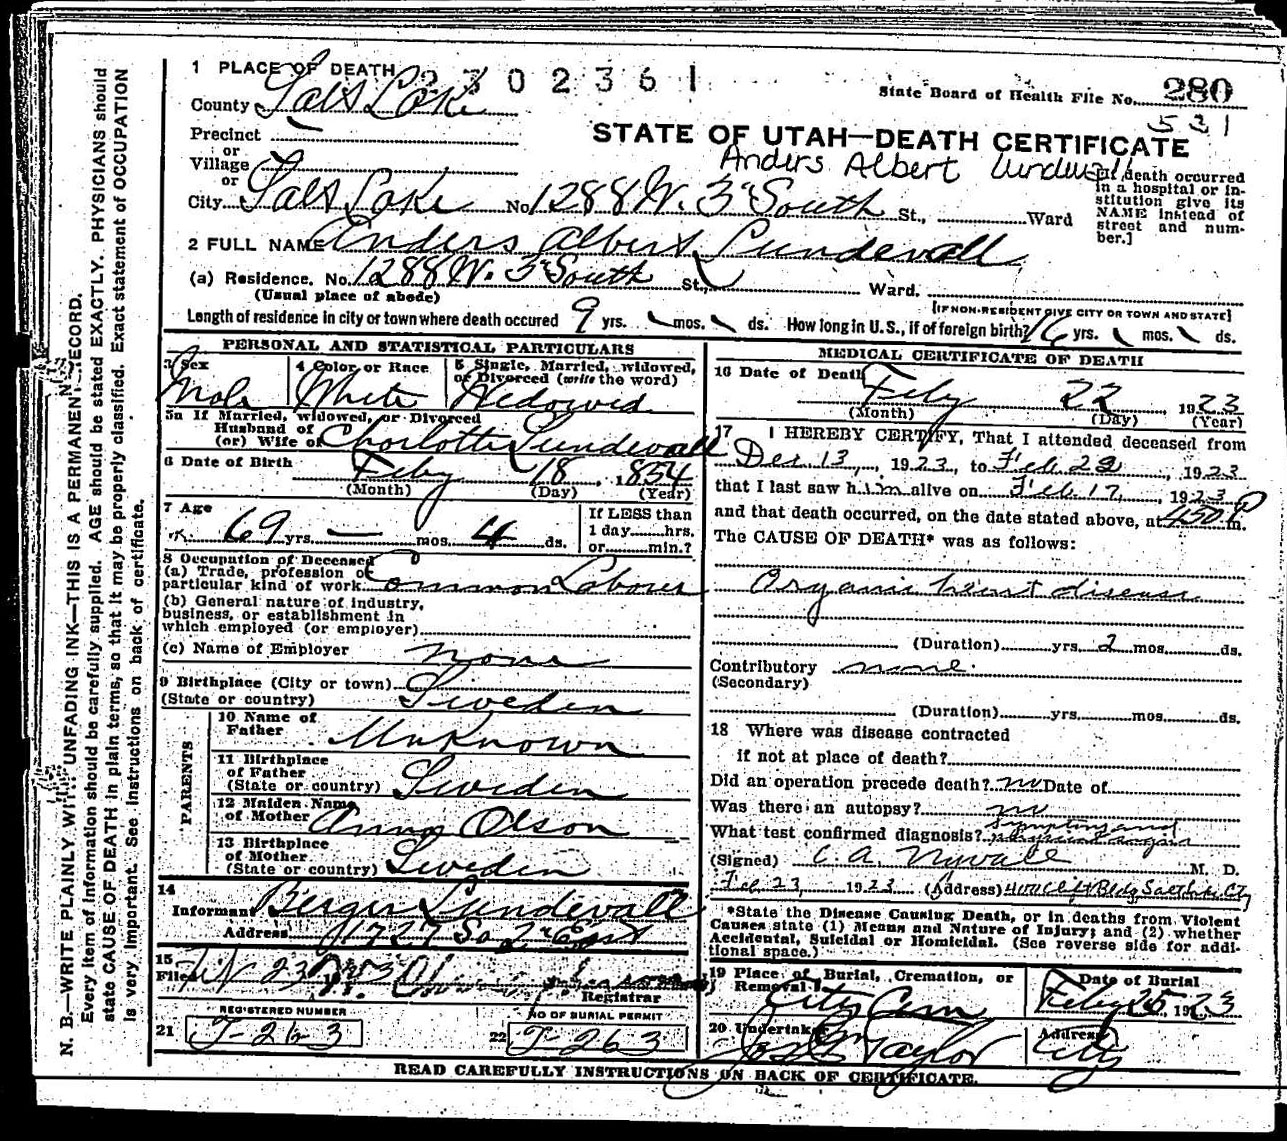 N. B.—WRITE PLAINLY WITH UNFADING INK—THIS IS A PERMANENT RECORD.
Every item of information should be carefully supplied. AGE should be stated EXACTLY. PHYSICIANS should
state CAUSE OF DEATH in plain terms, so that it may be properly classified. Exact statement of OCCUPATION
is very important. See instructions on back of certificate.
1 PLACE OF DEATH 2302361
State Board of Health File No. 280
531
County Salt Lake
STATE OF UTAH—DEATH CERTIFICATE
Precinct
or
Village
or
Anders Albert Lundwall
City Salt Lake No. 1288 W. 3 South St., Ward
[If death occurred
in a hospital or in-
stitution give its
NAME instead of
street and num-
ber.]
2 FULL NAME Anders Albert Lundevall
(a) Residence. No. 1288 W. 3 South St., Ward.
(Usual place of abode)
[IF NON-RESIDENT GIVE CITY OR TOWN AND STATE]
Length of residence in city or town where death occured 9 yrs. mos. ds. How long in U.S., if of foreign birth? 16 yrs. mos. ds.
PERSONAL AND STATISTICAL PARTICULARS
3 Sex
Male
4 Color or Race
White
5 Single, Married, widowed,
or Divorced (write the word)
Wedowed
5a If Married, widowed, or Divorced
Husband of
(or) Wife of Charlotte Lundevall
6 Date of Birth Feby 18 1854
(Month) (Day) (Year)
7 Age
69 yrs. — mos. 4 ds.
If LESS than
1 day hrs.
or min.?
8 Occupation of Deceased
(a) Trade, profession or
particular kind of work. Common Laborer
(b) General nature of industry,
business, or establishment in
which employed (or employer)
(c) Name of Employer none
9 Birthplace (City or town)
(State or country) Sweden
PARENTS
10 Name of
Father Unknown
11 Birthplace
of Father
(State or country) Sweden
12 Maiden Name
of Mother Anna Olson
13 Birthplace
of Mother
(State or country) Sweden
14
Informant Birger Lundevall
Address 1727 So 2 East
15
Filed 23
Registrar
REGISTERED NUMBER
21 J-263
NO OF BURIAL PERMIT
22 J-263
MEDICAL CERTIFICATE OF DEATH
16 Date of Death
Feby 22 1923
(Month) (Day) (Year)
17 I HEREBY CERTIFY, That I attended deceased from
Dec 13, 1923, to Feb. 22, 1923
that I last saw him alive on Feb. 17, 1923
and that death occurred, on the date stated above, at 450 P m.
The CAUSE OF DEATH* was as follows:
Organic heart disease
(Duration) yrs. 2 mos. ds.
Contributory none.
(Secondary)
(Duration) yrs. mos. ds.
18 Where was disease contracted
if not at place of death?
Did an operation precede death? no Date of
Was there an autopsy? no
What test confirmed diagnosis? symptoms and
(Signed) C. A. Nyvall M. D.
Feb. 23, 1923 (Address) Clift Bldg, Salt Lake City
*State the Disease Causing Death, or in deaths from Violent
Causes state (1) Means and Nature of Injury; and (2) whether
Accidental, Suicidal or Homicidal. (See reverse side for addi-
tional space.)
19 Place of Burial, Cremation, or
Removal City Cem
Date of Burial
Feby 25, 1923
20 Undertaker
Taylor
Address
City
READ CAREFULLY INSTRUCTIONS ON BACK OF CERTIFICATE.